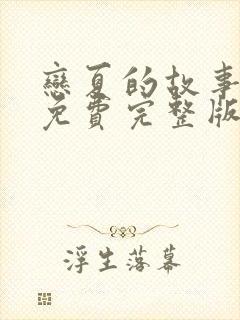 戀夏的故事
免費完整版
浮生落幕